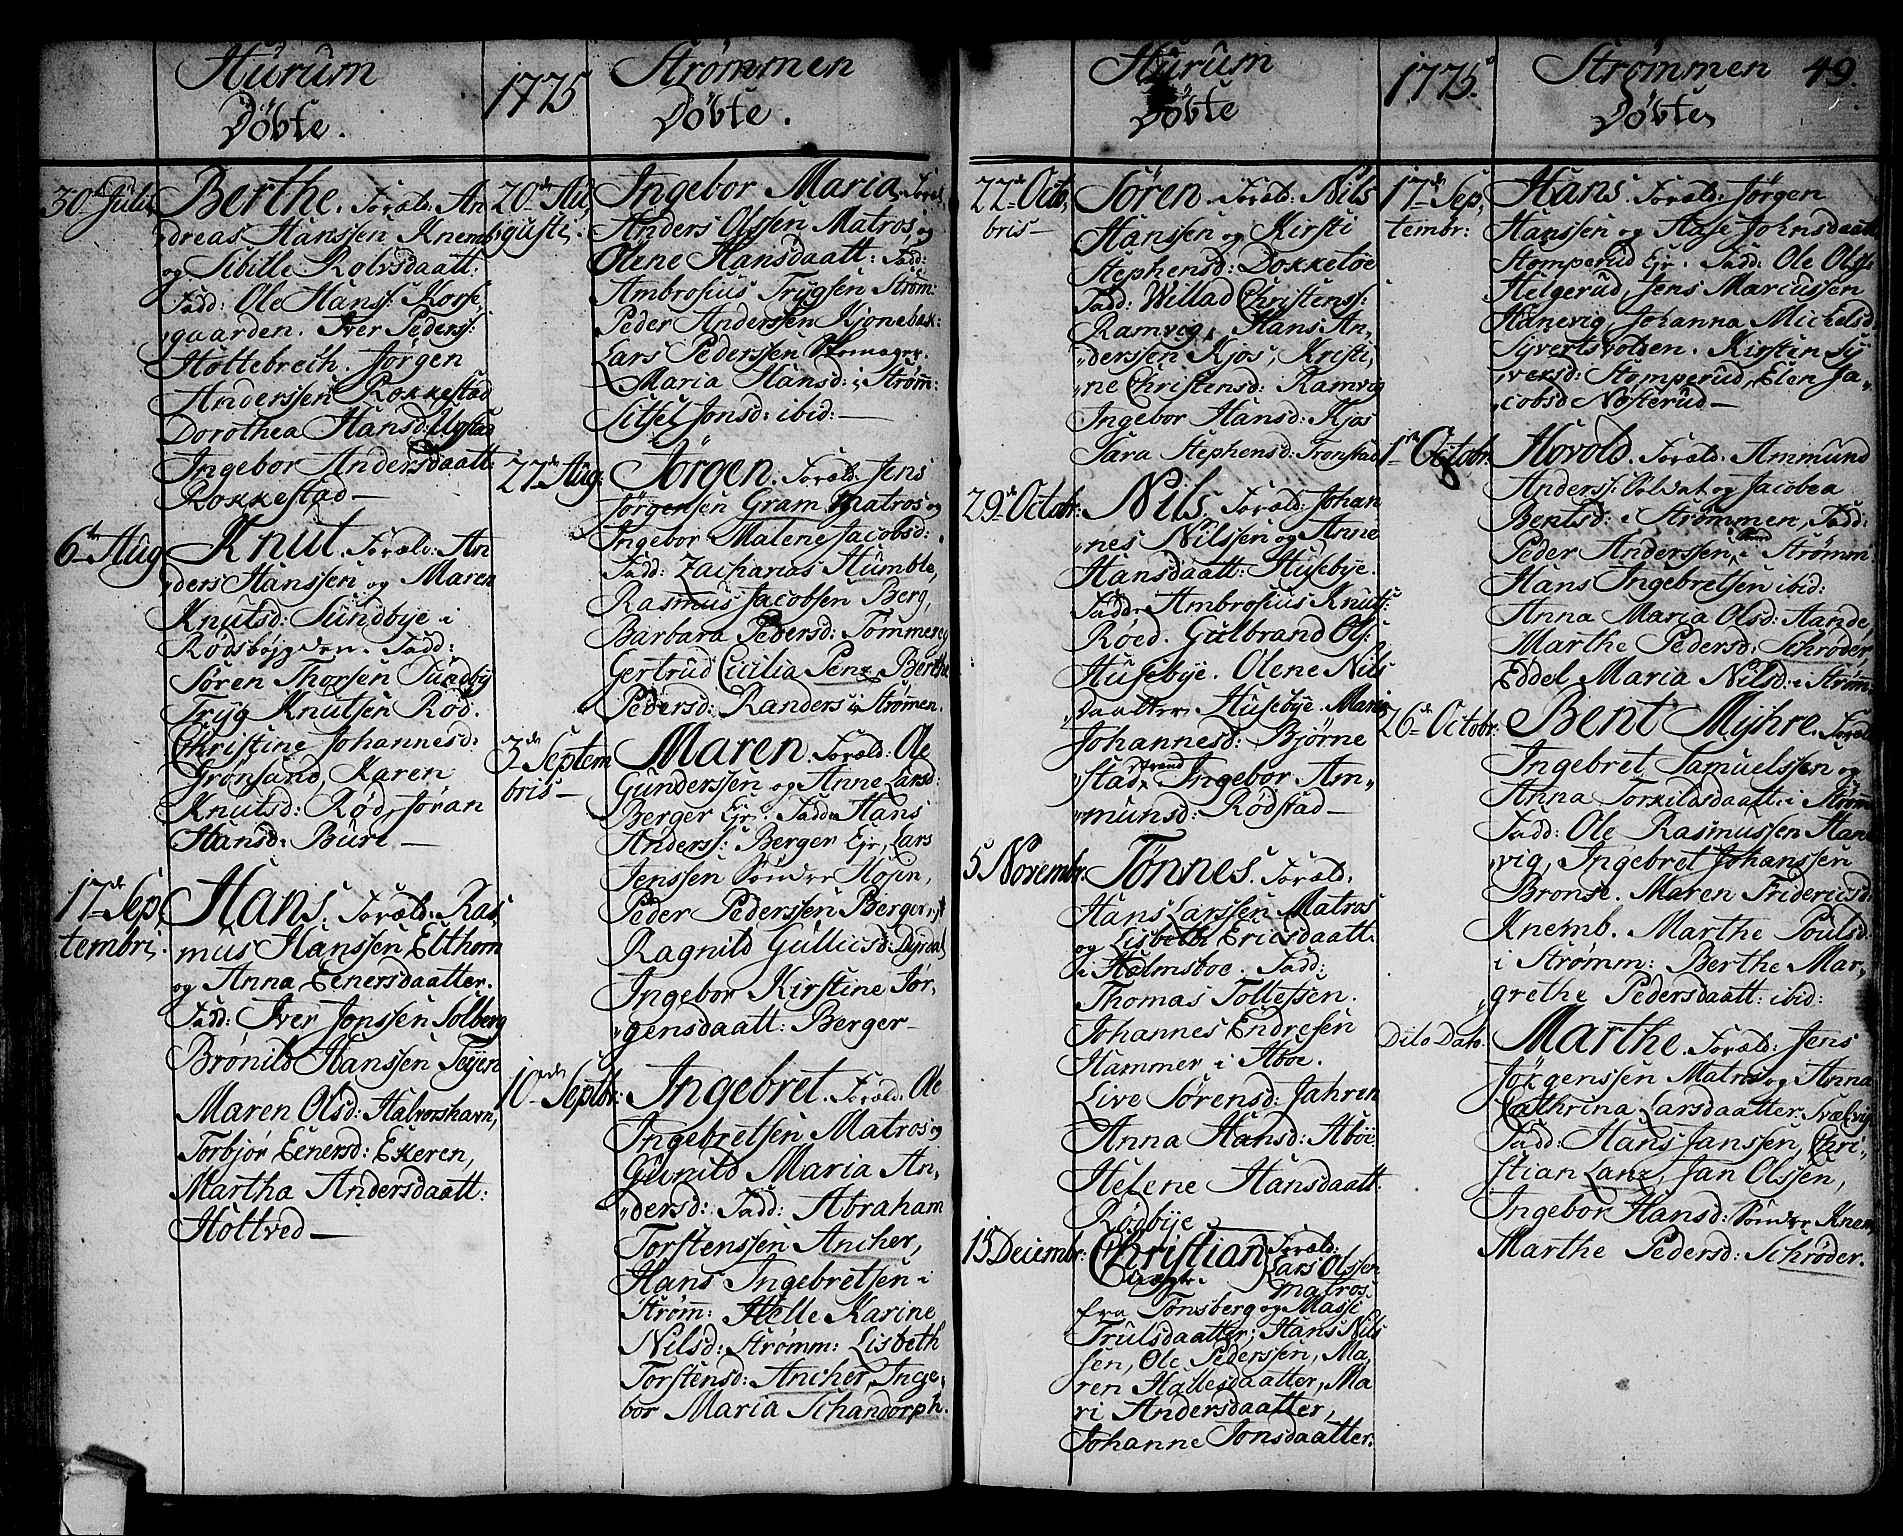 Hurum
Döbte.
30 Julii
Berthe. Foræld: An
dreas Hanssen Knemb
og Sibille Rolvsdaatt:
Fadd: Ole Hanss: Korse
gaarden. Iver Peders:
Hottebrech. Jørgen
Anderssen Rokkestad
Dorothea Hansd:
Ingebor Andersdaatt:
Rokkestad —
6te Aug
Knut. Foræld: An
ders Hanssen og Maren
Knutsd: Sundbye i
Rødsbøygden. Fadd:
Sören Thorsen Sundby
Tryg Knutsen Rød.
Christine Johannesd:
Grønsand, Karen
Knutsd: Rød, Jøran
Hansd: Bure —
17de Sep
tembris.
Hans. Foræld: Ras
mus Hanssen Elthorn
og Anna Eenersdaatter.
Fadd: Iver Jonssen Solberg
Brønild Hanssen Tejen
Maren Olsd: Halvorshavn,
Torbjør Eenersd: Ekeren,
Martha Andersdaatt:
Holtved —
1775
Strømmen
Døbte.
20de Au
gusti:
Ingebor Maria. Foræl
Anders Olssen Matros, og
Olene Hansdaatt: Fadd:
Ambrosius Trygsen Strøm:
Peder Anderssen Kjønebek:
Lars Pederssen Skomager.
Maria Hansd: i Strøm:
Sitsel Jonsd: ibid: —
27de Aug.
Jørgen. Foræld: Jens
Jørgensen Gram Matros og
Ingebor Malene Jacobsd:
Fadd: Zacharias Humble,
Rasmus Jacobsen Berg,
Barbara Pedersd: Tømmereg
Gertrud Cicilia Penz, Berthe
Pedersd: Randers i Strømen.
3de Septem
bris —
Maren. Foræld: Ole
Gunderssen og Anne Larsd:
Berger Ejr. Fadd: Hans
Anderss: Berger Ejr, Lars
Jenssen Sönder Höjen,
Peder Pederssen Berger
Ragnild Gullicsd: Dyrdal
Ingebor Kirstine Jør,
gensdaatt: Berger —
10de Septbr:
Ingebret. Foræld: Ole
Ingebretsen Matros og
Gunild Maria An,
dersd: Fadd: Abraham
Torstenssen Ancher,
Hans Ingebretsen i
Strøm: Helle Karine
Nilsd: Strømm: Lisbeth
Torstensd: Ancher, Inge,
bor Maria Schandorph.
Hurum
Döbte
22de Octo
bris —
Sören. Foræld: Nils
Hanssen og Kirsti
Stephensd: Dokketöe
Fadd: Willad Christenss:
Ramvig, Hans An,
derssen Kjos, Kristi,
ne Christensd: Ramvig
Ingebor Hansd: Kjos
Sara Stephensd: Tronstad
29de Octobr:
Nils. Foræld: Johan
nes Nilssen og Anne
Hansdaatt: Husebye.
Fadd: Ambrosius Knuts:
Røed. Gulbrand Ols:
Husebye. Olene Nils
daatter Husebye. Marie
Johannesd: Bjørne
stad strand Ingebor Am,
munsd: Rödstad —
5 Novembr:
Tönnes. Foræld:
Hans Larssen Matros
og Lisbeth Ericsdaatt:
i Halmsboe. Fadd:
Thomas Tollessen.
Johannes Endresen
Hammer i Aboe.
Live Sörensd: Jahren
Anna Hansd: Aboe
Helene Hansdaatt:
Rödbye
15 Decembr:
Christian Foræld:
Uægte. Lars Olssen
Matros
fra Tønsberg og Masse
Trulsdaatter, Hans Nils
sen, Ole Pederssen, Ma
ren Hallesdaatter, Ma
ri Andersdaatter,
Johanne Jonsdaatter.
1775.
Strømmen 49.
Døbte
17de Sep,
tembr:
Hans. Foræld: Jørgen
Hanssen og Aase Johnsdaatt
Stomperud Ejr. Fadd: Ole Ols
Helgerud, Jens Marcussen
Hanevig, Johanna Mickelsd
Syvertsvolden. Kirsten Sy
versd: Stomperud, Elen Ja,
cobsd Nøsterud —
1te Octobr:
Horold. Foræld: Ammund
Anderss: Soldat og Jacobea
Bentsd: i Strømmen, Fadd:
Peder Anderssen i Strømm
Hans Ingebretsen ibid:
Anna Maria Olsd: Aande,
Marthe Pedersd: Schrøder,
Eddel Maria Nilsd: i Strøm:
26de Octobr:
Bent Myhre. Foræld
Ingebret Samuelssen og
Anna Torkildsdaatt. i Strøm
Fadd: Ole Rasmussen Hane
vig, Ingebret Johanssen
Bronse. Maren Fridericsd:
Knemb. Marthe Poulsd:
i Strømm: Berthe Mar,
grethe Pedersdaatt: ibid:
Dito Dato.
Marthe. Foræld: Jens
Jörgenssen Matros og Anna
Cathrina Larsdaatter Svælvig
Fadd: Hans Janssen, Chri,
stian Lanz, Jan Olssen,
Ingebor Hansd: Sönder Knem,
Marthe Pedersd: Schrøder.